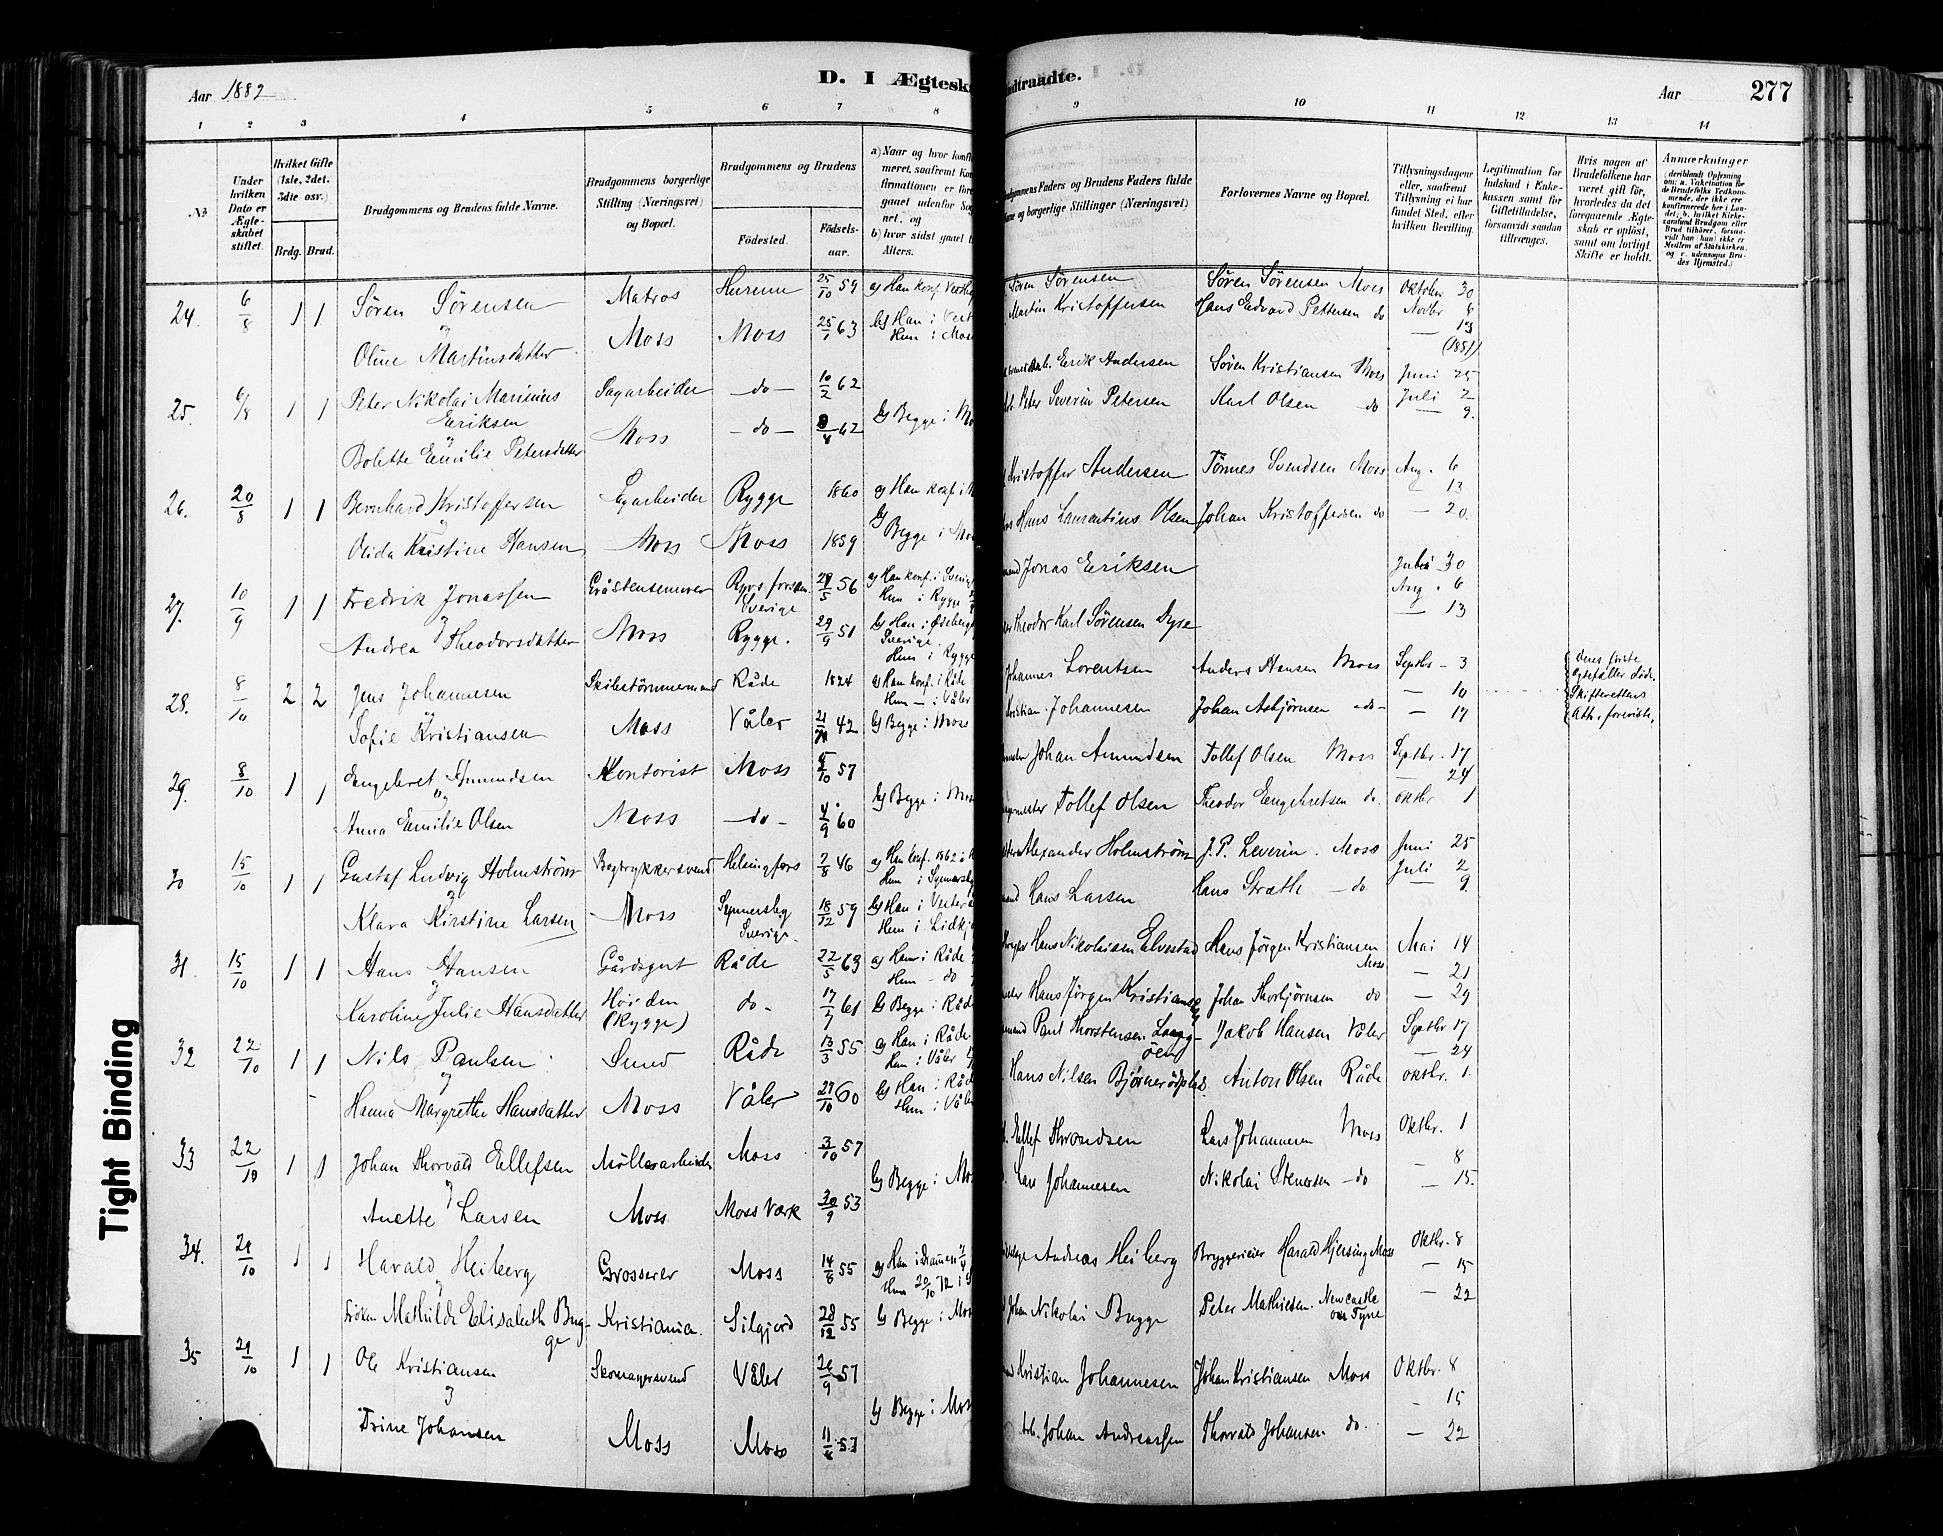 Aar 1882
D. I Ægtesk
ndtraadte.
Aar
277
1 2 3 4 5 6 7 8 9 10 11 12 13 14
No
Under hvilken Dato er Ægteskabet stiftet.
Hvilket Gifte (1ste, 2det, 3die osv.)
Brdg. Brud.
Brudgommens og Brudens fulde Navne.
Brudgommens borgerlige Stilling (Næringsvei) og Bopæl.
Brudgommens og Brudens
Fødested. Fødselsaar.
a) Naar og hvor konfir
meret, saafremt Kon
firmationen er fore
gaaet udenfor Sog
net, og
b) hvor sidst gaaet t
Alters.
udgommens Faders og Brudens Faders fulde
ne og borgerlige Stillinger (Næringsvei)
Forlovernes Navne og Bopæl.
Tillysningsdagene
eller, saafremt
Tillysning ei har
fundet Sted, efter
hvilken Bevilling.
Legitimation for
Indskud i Enkekassen
samt for
Giftetilladelse,
forsaavidt saadan
tiltrænges.
Hvis nogen af
Brudefolkene har
været gift før,
hvorledes da det
foregaaende Ægteskab
er opløst,
samt om lovligt
Skifte er holdt.
Anmærkninger
24. 6/8 1 1 Søren Sørensen Matros Hurum 25/10 59 a) Han konf. Søren Sørensen Søren Sørensen Moss Oktober 30
og
Oline Martinsdatter Moss Moss 25/1 63 b) Han i Vest Hun i Moss Martin Kristoffersen Hans Edvard Pettersen do Novbr 6 — 13 (1881)
25. 6/8 1 1 Peter Nikolai Marinius Eriksen Sagarbeider —do— 10/2 62 Erik Andersen Søren Kristiansen Moss Juni 25
og
Bolette Emilie Petersdatter Moss —do— 62 b) Begge i Mo Peter Severin Petersen Karl Olsen do Juli 2 — 9.
26. 20/8 1 1 Bernhard Kristoffersen Sagarbeider Rygge 1860 a) Han konf. i Kristoffer Andersen Tønnes Svendsen Moss Aug. 6 — 13
Olida Kristine Hansen Moss Moss 1859 b) Begge i Mo Hans Laurentius Olsen Johan Kristoffersen do — 20.
27. 10/9 1 1 Fredrik Jonassen Gråstensmurer Sverige 29/5 56 a) Han konf. i Sverig Hun i Rygge Jonas Eriksen Juli 30 Aug. 6
og
Andrea Theodorsdatter Moss Rygge. 29/9 51 b) Han i Sverige. Hun i Rygge Theodor Karl Sørensen Dyre — 13
28. 8/10 2 2 Jens Johannesen Skibstømmermand Råde 1824 a) Han konf. i Råde Hun — i Våler Johannes Lorentsen Anders Hansen Moss Septbr — 3 — 10 Deres første Ægtefæller døde. Skifterettens Att. foreviste.
og
Sofie Kristiansen Moss Våler 42 b) Begge i Moss Kristian Johannesen Johan Asbjørnsen do — 17
29. 8/10 1 1 Engebret Amundsen Kontorist Moss 57 Johan Amundsen Tollef Olsen Moss Septbr. 17 — 24
og
Anna Emilie Olsen Moss —do— 4/9 60 b) Begge i Moss Tollef Olsen Theodor Engebretsen do. Oktbr 1
30 15/10 1 1 Gustaf Ludvig Holmstrøm Bogtrykkersvend Helsingfors 7/8 46 a) Han konf. 1862 i Alexander Holmstrøm J. P. Leverin. Moss Juni 25 Juli 2
og
Klara Kirstine Larsen Moss Sverige. 18/12 59 b) Han i Hun i Lidkj Hans Larsen Hans Stræth —do. 9.
31. 15/10 1 1 Hans Hansen Gårdsgut Råde 22/5 63 a) Han i Råde Hun — do Hans Nikolaisen Elvestad Hans Jørgen Kristiansen Moss Mai 14 — 21
og
Karoline Julie Hansdatter Høiden (Rygge) do. 17/7 61 b) Begge i Råde Hans Jørgen Kristiansen Johan Thorbjørnsen do — 29
32 22/10 1 1 Nils Paulsen Smed Råde 13/3 55 a) Han i Råde Hun i Våler Paul Thorstensen Jakob Hansen Våler Septbr 17 — 24
og
Hanna Margrethe Hansdatter Moss Våler 29/10 60 b) Han i Råd Hun i Våler Hans Nilsen Bjørnerødpladsen Anton Olsen Råde Oktbr. 1
33 22/10 1 1 Johan Thorvald Ellefsen Møllearbeider Moss 3/10 57 Ellef Throndsen Lars Johannesen Moss Oktbr. 1 — 8
og
Anette Larsen Moss Moss Værk 30/9 53 b) Begge i Mo Lars Johannesen Nikolai Stenersen —do — 15.
34. 29/10 1 1 Harald Heiberg Grosserer Moss 14/8 55 a) Han i Drammen Andreas Heiberg Bryggerieier Harald Hjersing Moss Oktbr. 8 — 15
og
Frøken Mathilde Elisabeth Bugge Kristiania. Silgjord 28/12 55 b) Begge i Moss Johan Nikolai Bugge Peter Mathiesen. Newcastle on Tyne — 22
35 29/10 1 1 Ole Kristiansen Skomagersvend Våler 26/9 57 Kristian Johannesen Johan Kristiansen Moss Oktbr. 8 — 15
og
Trine Johansen Moss Moss 57 b) Begge i Mos Arb. Johan Andreassen Thorvald Johansen do. — 22
Tight Binding